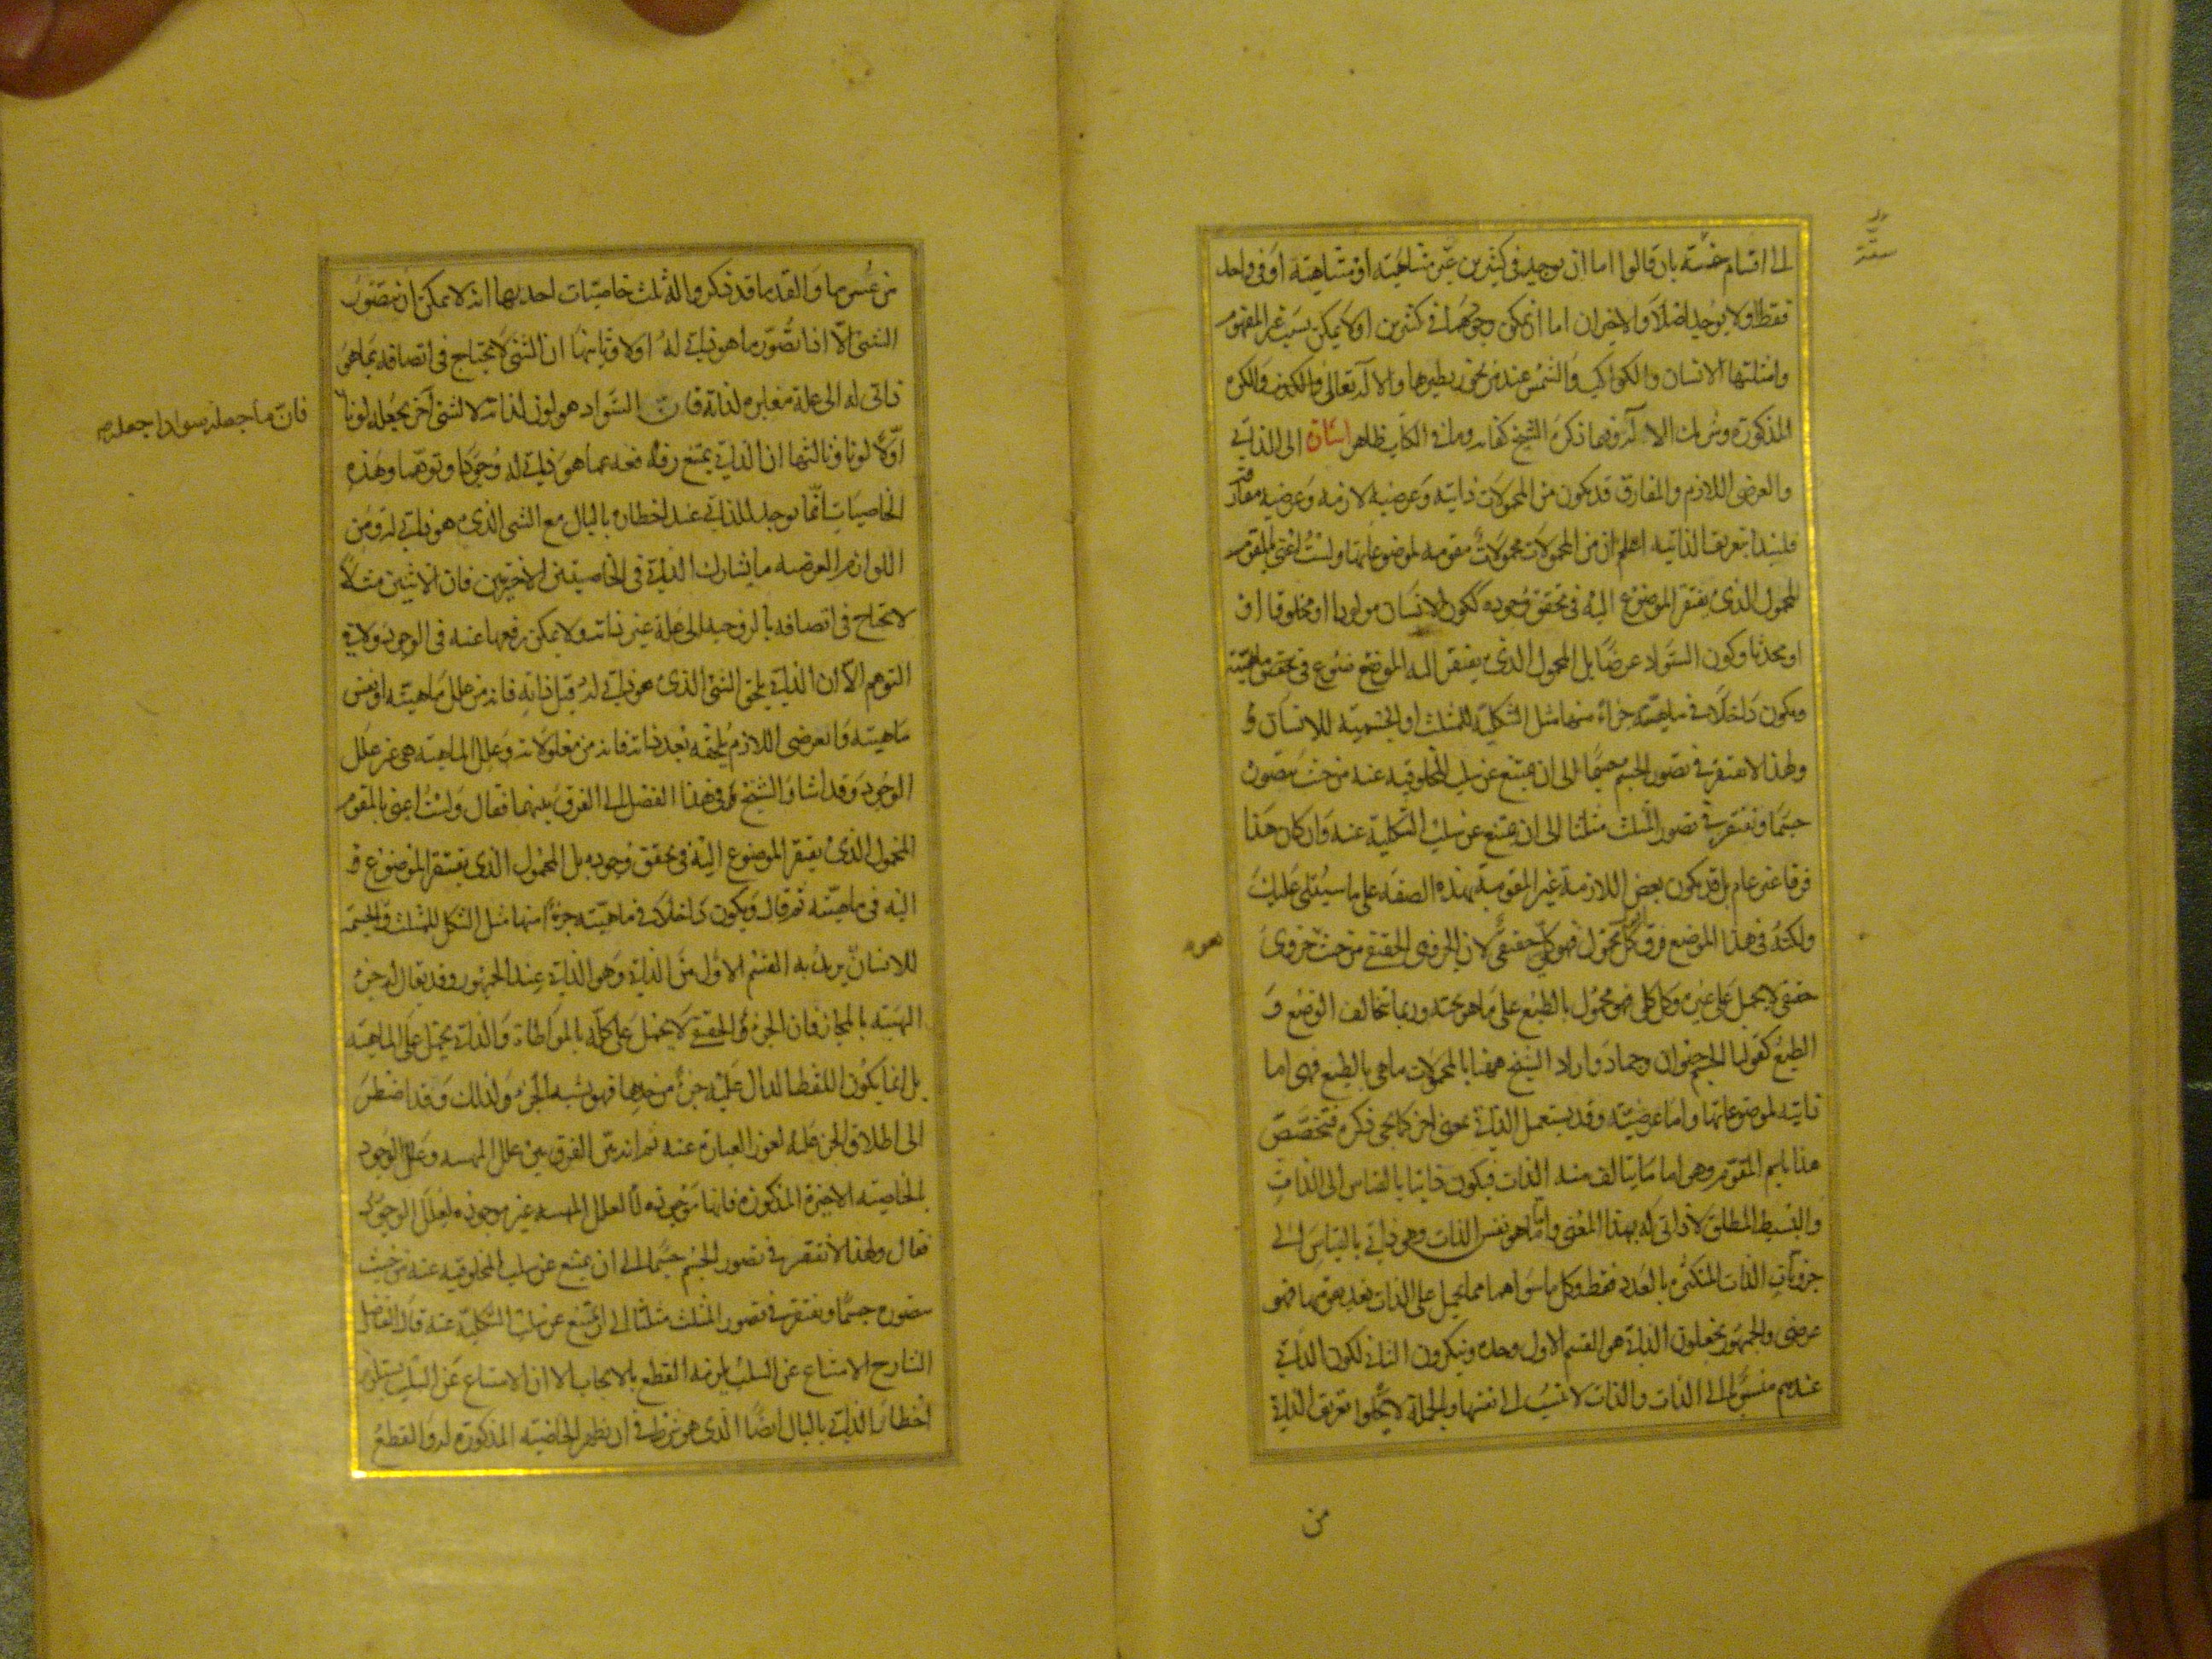 الى اقسام خمسة بان قالوا اما ان يوجد في كثيرين غير متناهية او متناهية او في واحد
فقط او لا يوجد اصلا والاخيران اما ان يمكن وجودهما في كثيرين او لا يمكن بسبب غير المفهوم
وامثلتها الانسان والكواكب والشمس عند من يجوز نظيرها والاله تعالى والكره
المذكورة وشريك الاله وفيما ذكره الشيخ كفاية وما في الكتاب ظاهر اشارة الى الذاتي
والعرضي اللازم والمفارق قد يكون من المحمولات ذاتية وعرضية لازمة وعرضية مفارقة
فلنبدا بتعريف الذاتية اعلم ان من المحمولات محمولات مقومة لموضوعاتها ولست اعني بالمقوم
المحمول الذي يفتقر الموضوع اليه في تحقق وجوده ككون الانسان مولودا او مخلوقا او
او محدثا وكون السواد عرضا بل المحمول الذي يفتقر اليه الموضوع في تحقق ماهيته
ويكون داخلا في ماهيته جزءا منها مثل الشكلية للمثلث او الجسمية للانسان و
ولهذا لا نفتقر في تصور الجسم جسما الى ان نمتنع عن سلب المخلوقية عنه من حيث نتصوره
جسما ونفتقر في تصور المثلث مثلثا الى ان نمتنع عن سلب الشكلية عنه وان كان هذا
فرقا غير عام بل قد يكون بعض اللازمة غير المقومة بهذه الصفة على ما سيتلى عليك
ولكنه في هذا الموضع فرق كل محمول فهو كلي حقيقي لان الجزوي الحقيقي من حيث جزوي
حقيقي لا يحمل على غيره وكل كلي فهو محمول بالطبع على ما هو تحته وربما تخالف الوضع و
الطبع كقولنا الجسم حيوان وجماد واراد الشيخ ههنا بالمحمولات ما هي بالطبع فهي اما
ذاتية لموضوعاتها واما عرضية وقد يستعمل الذاتي بمعنى اخر كما يجي ذكره فتخصص
هذا باسم المقوم وهي اما ما يتالف منه الذات فيكون ذاتيا بالقياس الى الذات
والبسيط المطلق لا ذاتي له بهذا المعنى واما هو نفس الذات وهو ذاتي بالقياس الى
جزويات الذات المتكثرة بالعدد فقط وكل ما سواهما مما يحمل على الذات بعد تقومها فهو
عرضي والجمهور يجعلون الذاتي هو القسم الاول وحده وينكرون الثاني لكون الذاتي
عندهم منسوبا الى الذات والذات لا تنسب الى نفسها وبالجملة لا يخلوا تعريف الذاتي
من
من عسر ما والقدما قد ذكروا له ثلث خاصيات احديها انه لا يمكن ان يتصور
الشئ الا اذا تصور ما هو ذاتي له اولا وثانيها ان الشئ لا يحتاج في اتصافه بما هو
ذاتي له الى علة مغايرة لذاته فان السواد هو لون لذاته لا لشئ آخر يجعله لونا
فان ما جعله سوادا جعله
اولا لونا وثالثها ان الذاتي يمتنع رفعه عما هو ذاتي له وجودا وتوهما وهذه
الخاصيات انما يوجد للذاتي عند اخطاره بالبال مع الشئ الذي هو ذاتي له ومن
اللوازم العرضية ما يشارك الذاتي في الخاصيتين الاخيرتين فان الاثنين مثلا
لا يحتاج في اتصافه بالزوجية الى علة غير ذاته ولا يمكن رفعها عنه في الوجود ولا في
التوهم الا ان الذاتي يلحق الشئ الذي هو ذاتي له قبل ذاته فانه من علل ماهيته او نفس
ماهيته والعرضي اللازم يلحقه بعد ذاته فانه من معلولاته وعلل الماهية هي غير علل
الوجود وقد اشار الشيخ في هذا الفصل الى الفرق بينهما فقال ولست اعني بالمقوم
المحمول الذي يفتقر الموضوع اليه في تحقق وجوده بل المحمول الذي يفتقر الموضوع
اليه في ماهيته ثم قال ويكون داخلا في ماهيته جزءا منها مثل الشكل للمثلث والجسمية
للانسان يريد به القسم الاول من الذاتي وهو الذاتي عند الجمهور وقد يقال له جزء
المهية بالمجاز فان الجزء الحقيقي لا يحمل على كله بالمواطاة والذاتي يحمل على الماهية
بل انما يكون اللفظ الدال عليه جزء من حدها فهو يشبه الجزء ولذلك وقد اضطر
الى اطلاق الجزء عليه لعوز العبارة عنه ثم انه بين الفرق بين علل المهية وعلل الوجود
بالخاصية الاخيرة المذكورة فانها موجودة لعلل المهية غير موجودة لعلل الوجود
فقال ولهذا لا نفتقر في تصور الجسم جسما الى ان نمتنع عن سلب المخلوقية عنه من حيث
نتصوره جسما ونفتقر في تصور المثلث مثلثا الى ان نمتنع عن سلب الشكلية عنه قال الفاضل
الشارح الامتناع عن السلب يلزمه القطع بالايجاب الا ان الامتناع عن السلب يستلزم
اخطار الذاتي بالبال ايضا الذي هو شرط في ان يظهر الخاصية المذكورة له والقطع